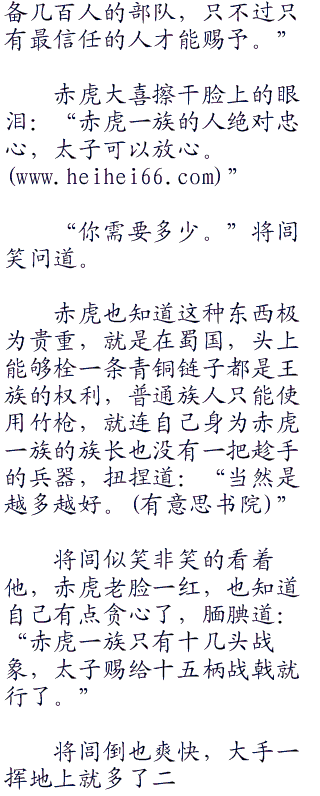 备几百人的部队，只不过只
有最信任的人才能赐予。”
赤虎大喜擦干脸上的眼
泪：“赤虎一族的人绝对忠
心，太子可以放心。
(www.heihei66.com)”
“你需要多少。”将闾
笑问道。
赤虎也知道这种东西极
为贵重，就是在蜀国，头上
能够栓一条青铜链子都是王
族的权利，普通族人只能使
用竹枪，就连自己身为赤虎
一族的族长也没有一把趁手
的兵器，扭捏道：“当然是
越多越好。(有意思书院)”
将闾似笑非笑的看着
他，赤虎老脸一红，也知道
自己有点贪心了，腼腆道：
“赤虎一族只有十几头战
象，太子赐给十五柄战戟就
行了。”
将闾倒也爽快，大手一
挥地上就多了二